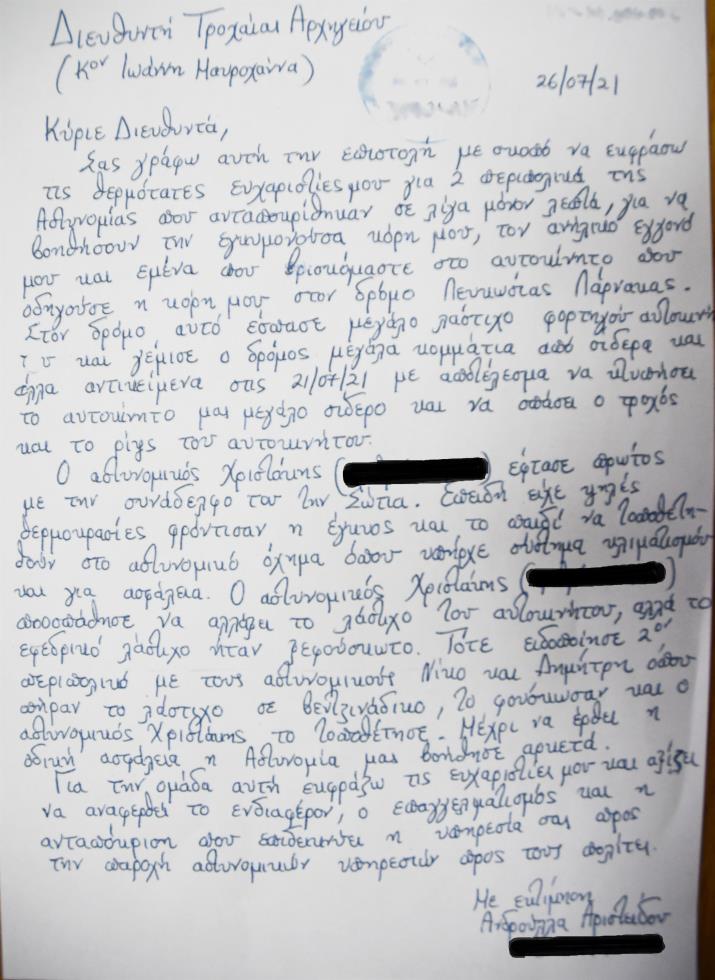 Διευθυντή Τροχαίας Αρχηγείου
(Κον Ιωάννη Μαυροχάννα)
26/07/21
Κύριε Διευθυντά,
Σας γράφω αυτή την επιστολή με σκοπό να εκφράσω
τις θερμότατες ευχαριστίες μου για 2 περιπολικά της
Αστυνομίας που ανταποκρίθηκαν σε λίγα μόνον λεπτά, για να
βοηθήσουν την εγκυμονούσα κόρη μου, τον ανήλικο εγγονό
μου και εμένα που βρισκόμαστε στο αυτοκίνητο που
οδηγούσε η κόρη μου στον δρόμο Λευκωσίας Λάρνακας.
Στον δρόμο αυτό έσπασε μεγάλο λάστιχο φορτηγού αυτοκινή
του και γέμισε ο δρόμος μεγάλα κομμάτια από σίδερα και
άλλα αντικείμενα στις 21/07/21 με αποτέλεσμα να κτυπήσει
το αυτοκίνητο μας μεγάλο σίδερο και να σπάσει ο τροχός
και το ρίγς του αυτοκινήτου.
Ο αστυνομικός Χριστάκης ( ) έφτασε πρώτος
με την συνάδελφο του την Σώτια. Επειδή είχε ψηλές
θερμοκρασίες φρόντισαν η έγκυος και το παιδί να τοποθετη-
θούν στο αστυνομικό όχημα όπου υπήρχε σύστημα κλιματισμού
και για ασφάλεια. Ο αστυνομικός Χριστάκης ( )
αποσπάθησε να αλλάξει το λάστιχο του αυτοκινήτου, αλλά το
εφεδρικό λάστιχο ήταν ξεφούσκωτο. Τότε ειδοποίησε 2ον
περιπολικό με τους αστυνομικούς Νίκο και Δημήτρη όπου
πήραν το λάστιχο σε βενζινάδικο, το φούσκωσαν και ο
αστυνομικός Χριστάκης το τοποθέτησε. Μέχρι να έρθει η
οδική ασφάλεια η Αστυνομία μας βοήθησε αρκετά.
Για την ομάδα αυτή εκφράζω τις ευχαριστίες μου και αξίζει
να αναφερθεί το ενδιαφέρον, ο επαγγελματισμός και η
ανταπόκριση που επιδεικνύει η υπηρεσία σας προς
την παροχή αστυνομικών υπηρεσιών προς τους πολίτες.
Με εκτίμηση
Ανδρούλλα Αριστείδου